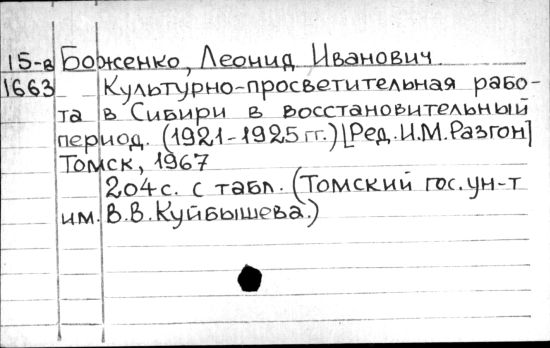 15-в Боженко, Леонид Иванович
1663 Культурно-просветительная рабо-
та в Сибири в восстановительный
период. (1921-1925 гг.) [Ред. И.М. Разгон]
Томск, 1967
204 с. с табл. (Томский гос. ун-т
им. В.В. Куйбышева.)